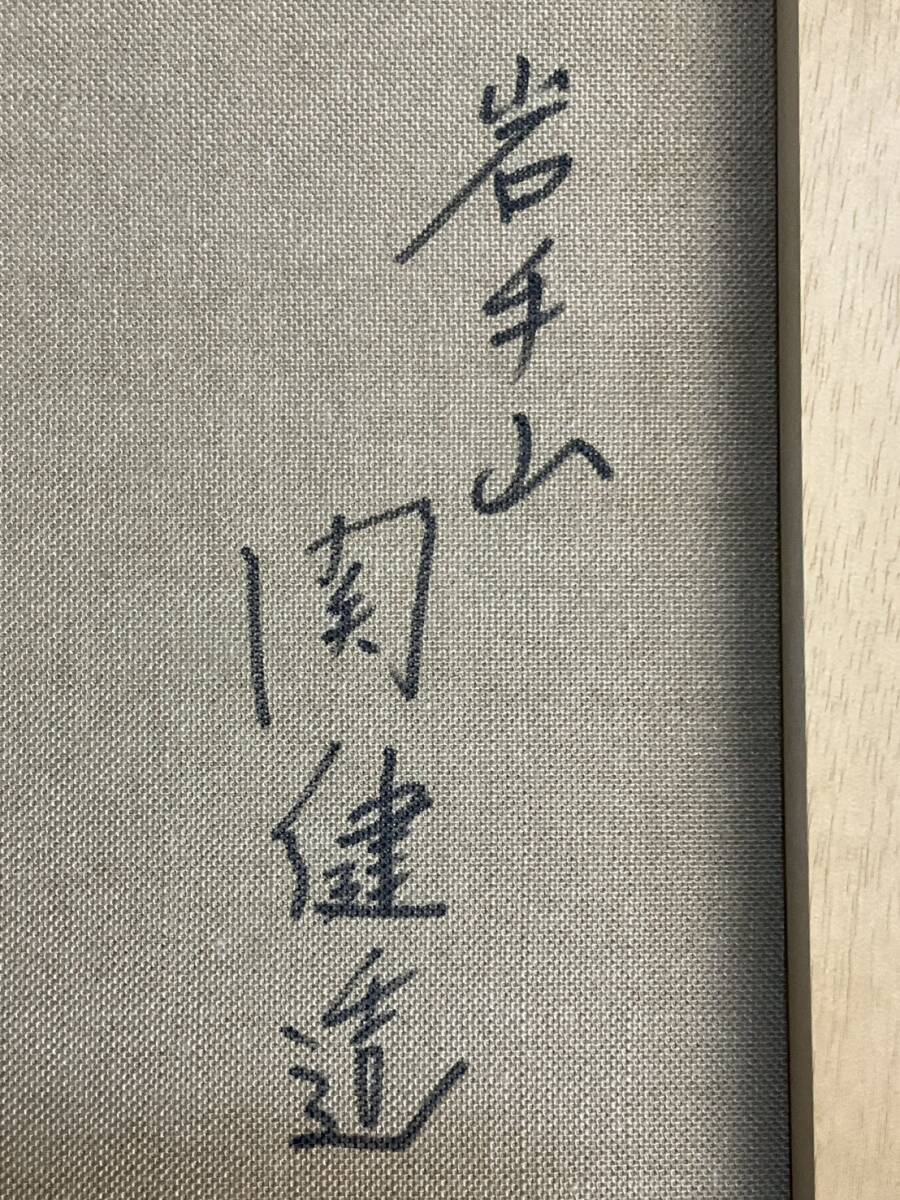 岩手山
関健造